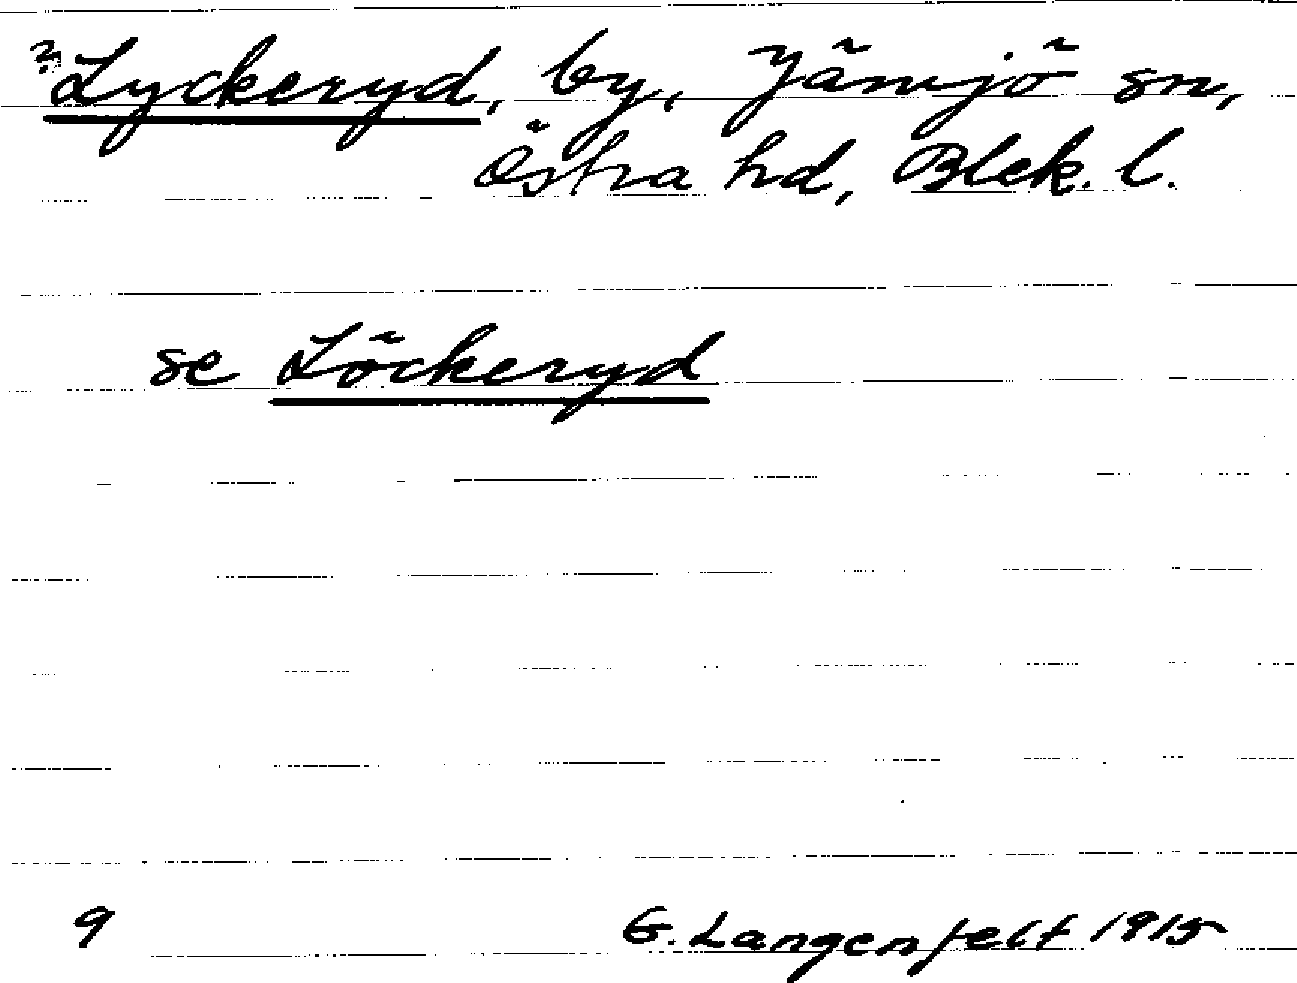 ? Lyckeryd, by, Jämjö sn,
Östra hd, Blek. l.
se Löckeryd
9 G. Langenfelt 1915